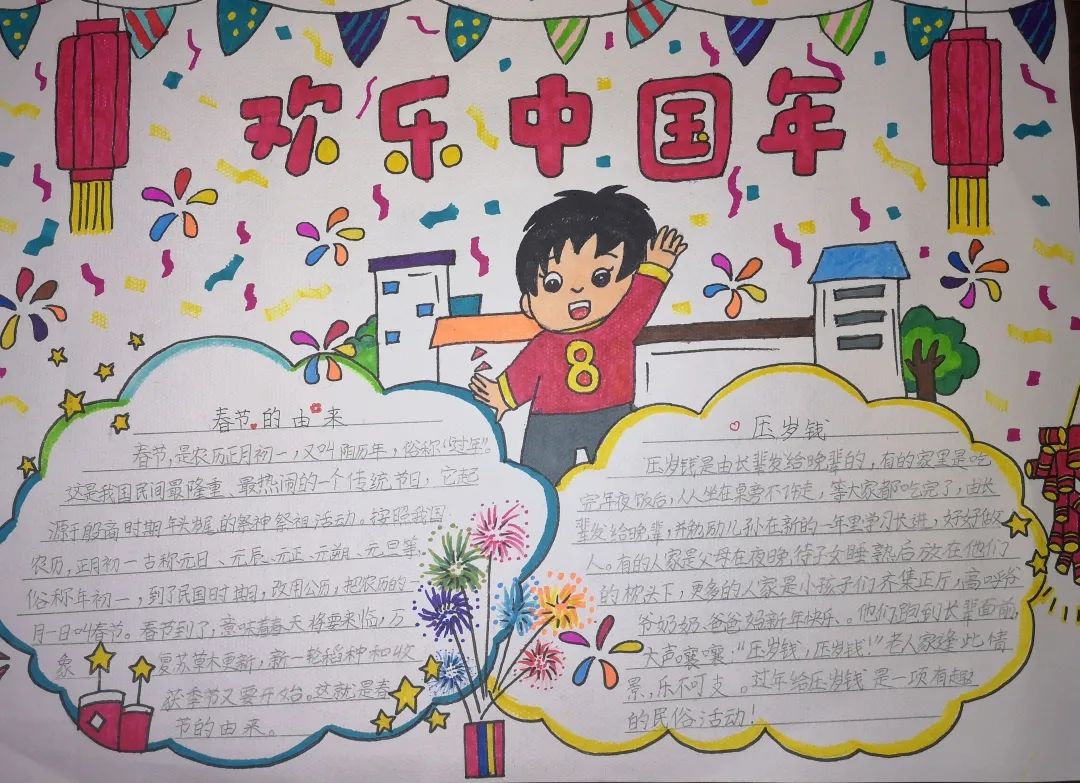 欢乐中国年
8
春节的由来
春节,是农历正月初一,又叫阴历年,俗称“过年”。
这是我国民间最隆重、最热闹的一个传统节日,它起
源于殷商时期年头年尾的祭神祭祖活动。按照我国
农历,正月初一古称元日、元辰、元正、元朔、元旦等,
俗称年初一,到了民国时期,改用公历,把农历的一
月一日叫春节。春节到了,意味着春天将要来临,万
象复苏草木更新,新一轮稻种和收
获季节又要开始。这就是春
节的由来。
压岁钱
压岁钱是由长辈发给晚辈的,有的家里是吃
完年夜饭后,人人坐在桌旁不许走,等大家都吃完了,由长
辈发给晚辈,并勉励儿孙在新的一年里学习长进,好好做
人。有的人家是父母在夜晚待子女睡熟后放在他们
的枕头下,更多的人家是小孩子们齐集正厅,高呼爷
爷奶奶、爸爸妈新年快乐、。他们跑到长辈面前,
大声嚷嚷:“压岁钱,压岁钱!”老人家逢此情
景,乐不可支。过年给压岁钱是一项有趣
的民俗活动!